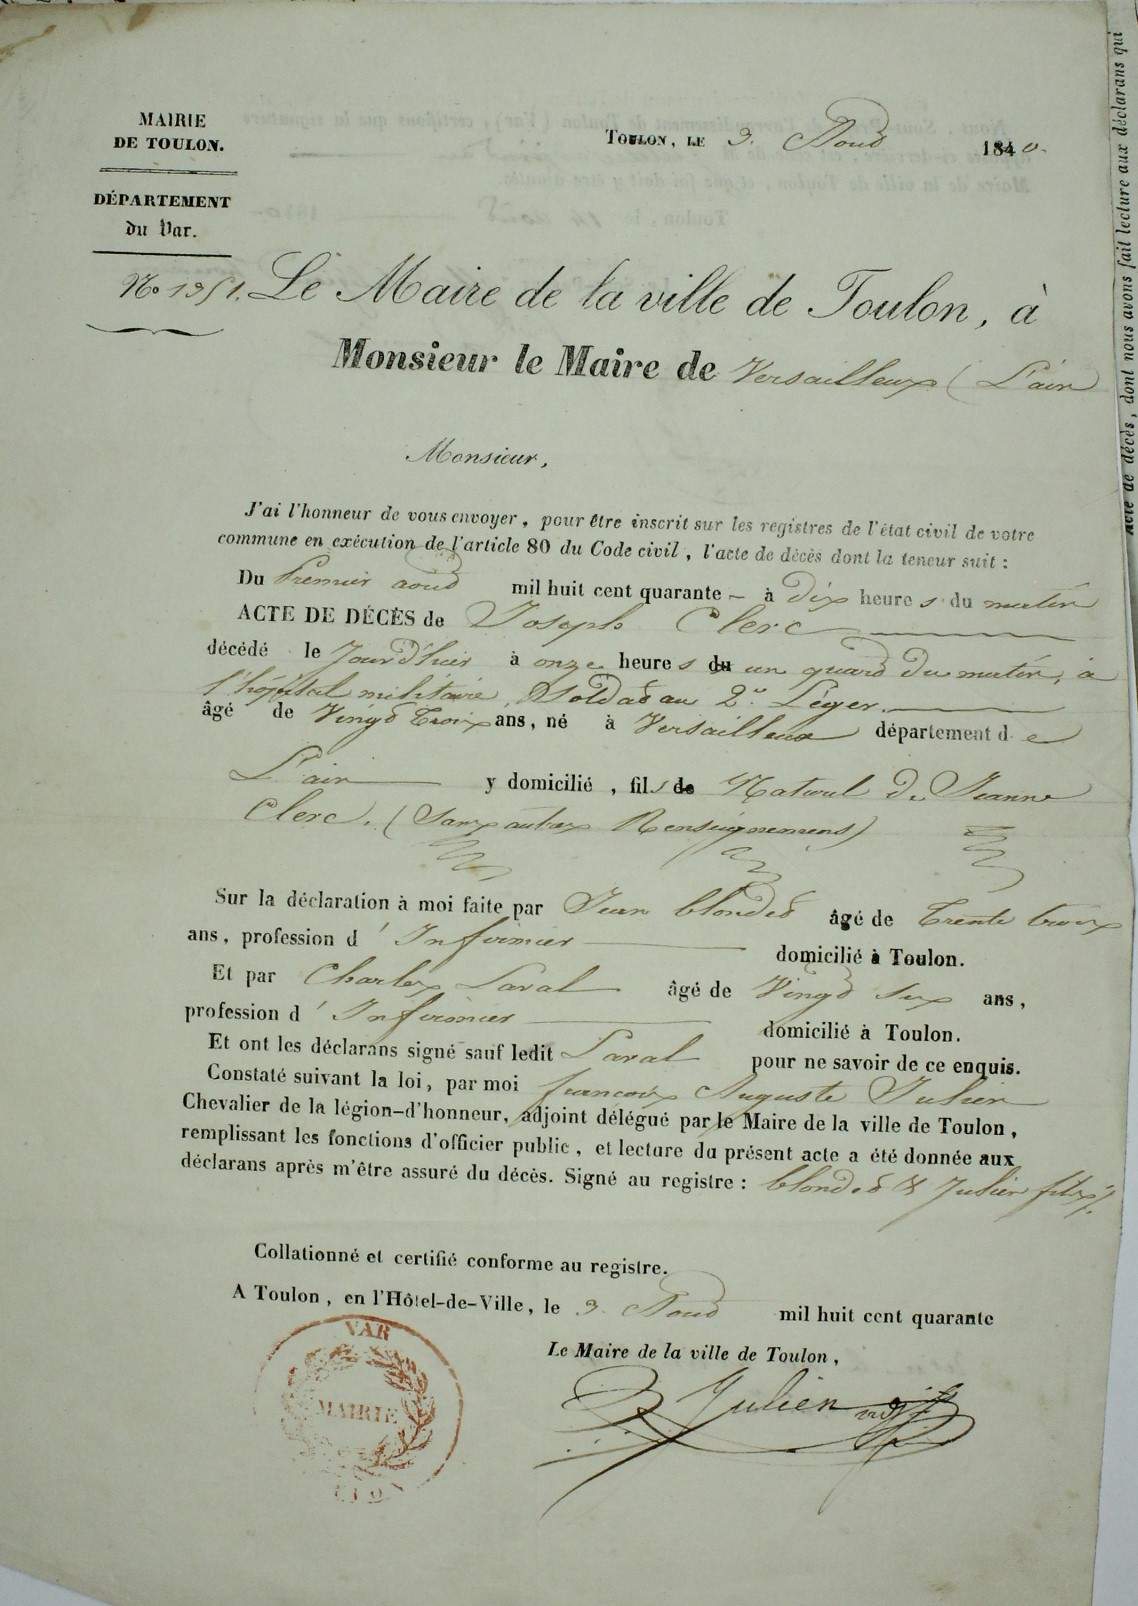 MAIRIE
DE TOULON.
DÉPARTEMENT
du Var.
TOULON, LE 3. Aoud 1840.
No 1351. Le Maire de la ville de Toulon, à
Monsieur le Maire de Versailleux (L'ain
Monsieur,
J'ai l'honneur de vous envoyer, pour être inscrit sur les registres de l'état civil de votre
commune en exécution de l'article 80 du Code civil, l'acte de décès dont la teneur suit :
Du Premier aoud mil huit cent quarante – à dix heures du matin
ACTE DE DÉCÈS de Joseph Clerc
décédé le Jourd'huir à onze heures du un quard du matin, à
l'hôpital militaire, Soldad au 2e Léger.
âgé de Vingd Troix ans, né à Versailleux département de
L'ain y domicilié, fils de Naturel de Jeanne
Clerc. (Sanx autrex Renseignemens)
Sur la déclaration à moi faite par Jean blonded âgé de Trente troix
ans, profession d'Infirmier domicilié à Toulon.
Et par Charlex Laval âgé de Vingd six ans,
profession d'Infirmier domicilié à Toulon.
Et ont les déclarans signé sauf ledit Laval pour ne savoir de ce enquis.
Constaté suivant la loi, par moi françoix Auguste Julien
Chevalier de la légion-d'honneur, adjoint délégué par le Maire de la ville de Toulon,
remplissant les fonctions d'officier public, et lecture du présent acte a été donnée aux
déclarans après m'être assuré du décès. Signé au registre : blonded & Julien filx
Collationné et certifié conforme au registre.
A Toulon, en l'Hôtel-de-Ville, le 3. Aoud mil huit cent quarante
Le Maire de la ville de Toulon,
Julien
VAR
MAIRIE
Acte de décès, dont nous avons fait lecture aux déclarans qui